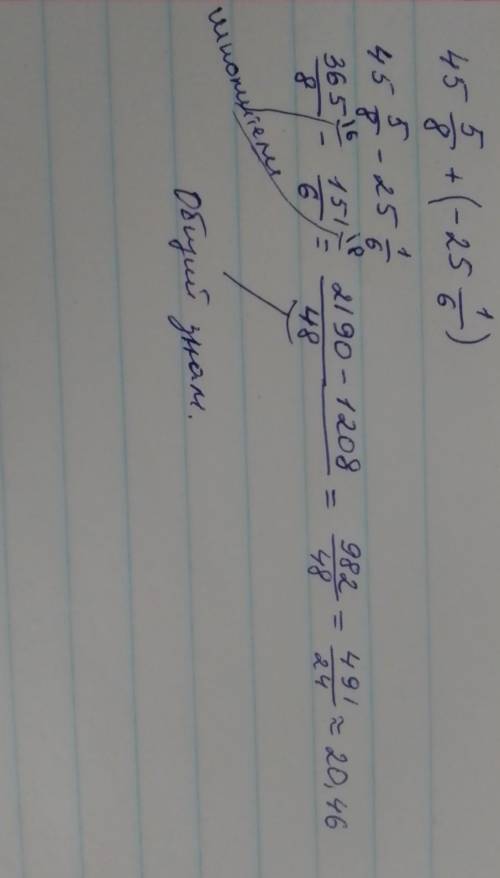 45 5/8 + (-25 1/6)
45 5/8 - 25 1/6
365/8 \6 - 151/6 \8 = 2190 - 1208/48 = 982/48 = 491/24 ≈ 20,46
Общий знам.